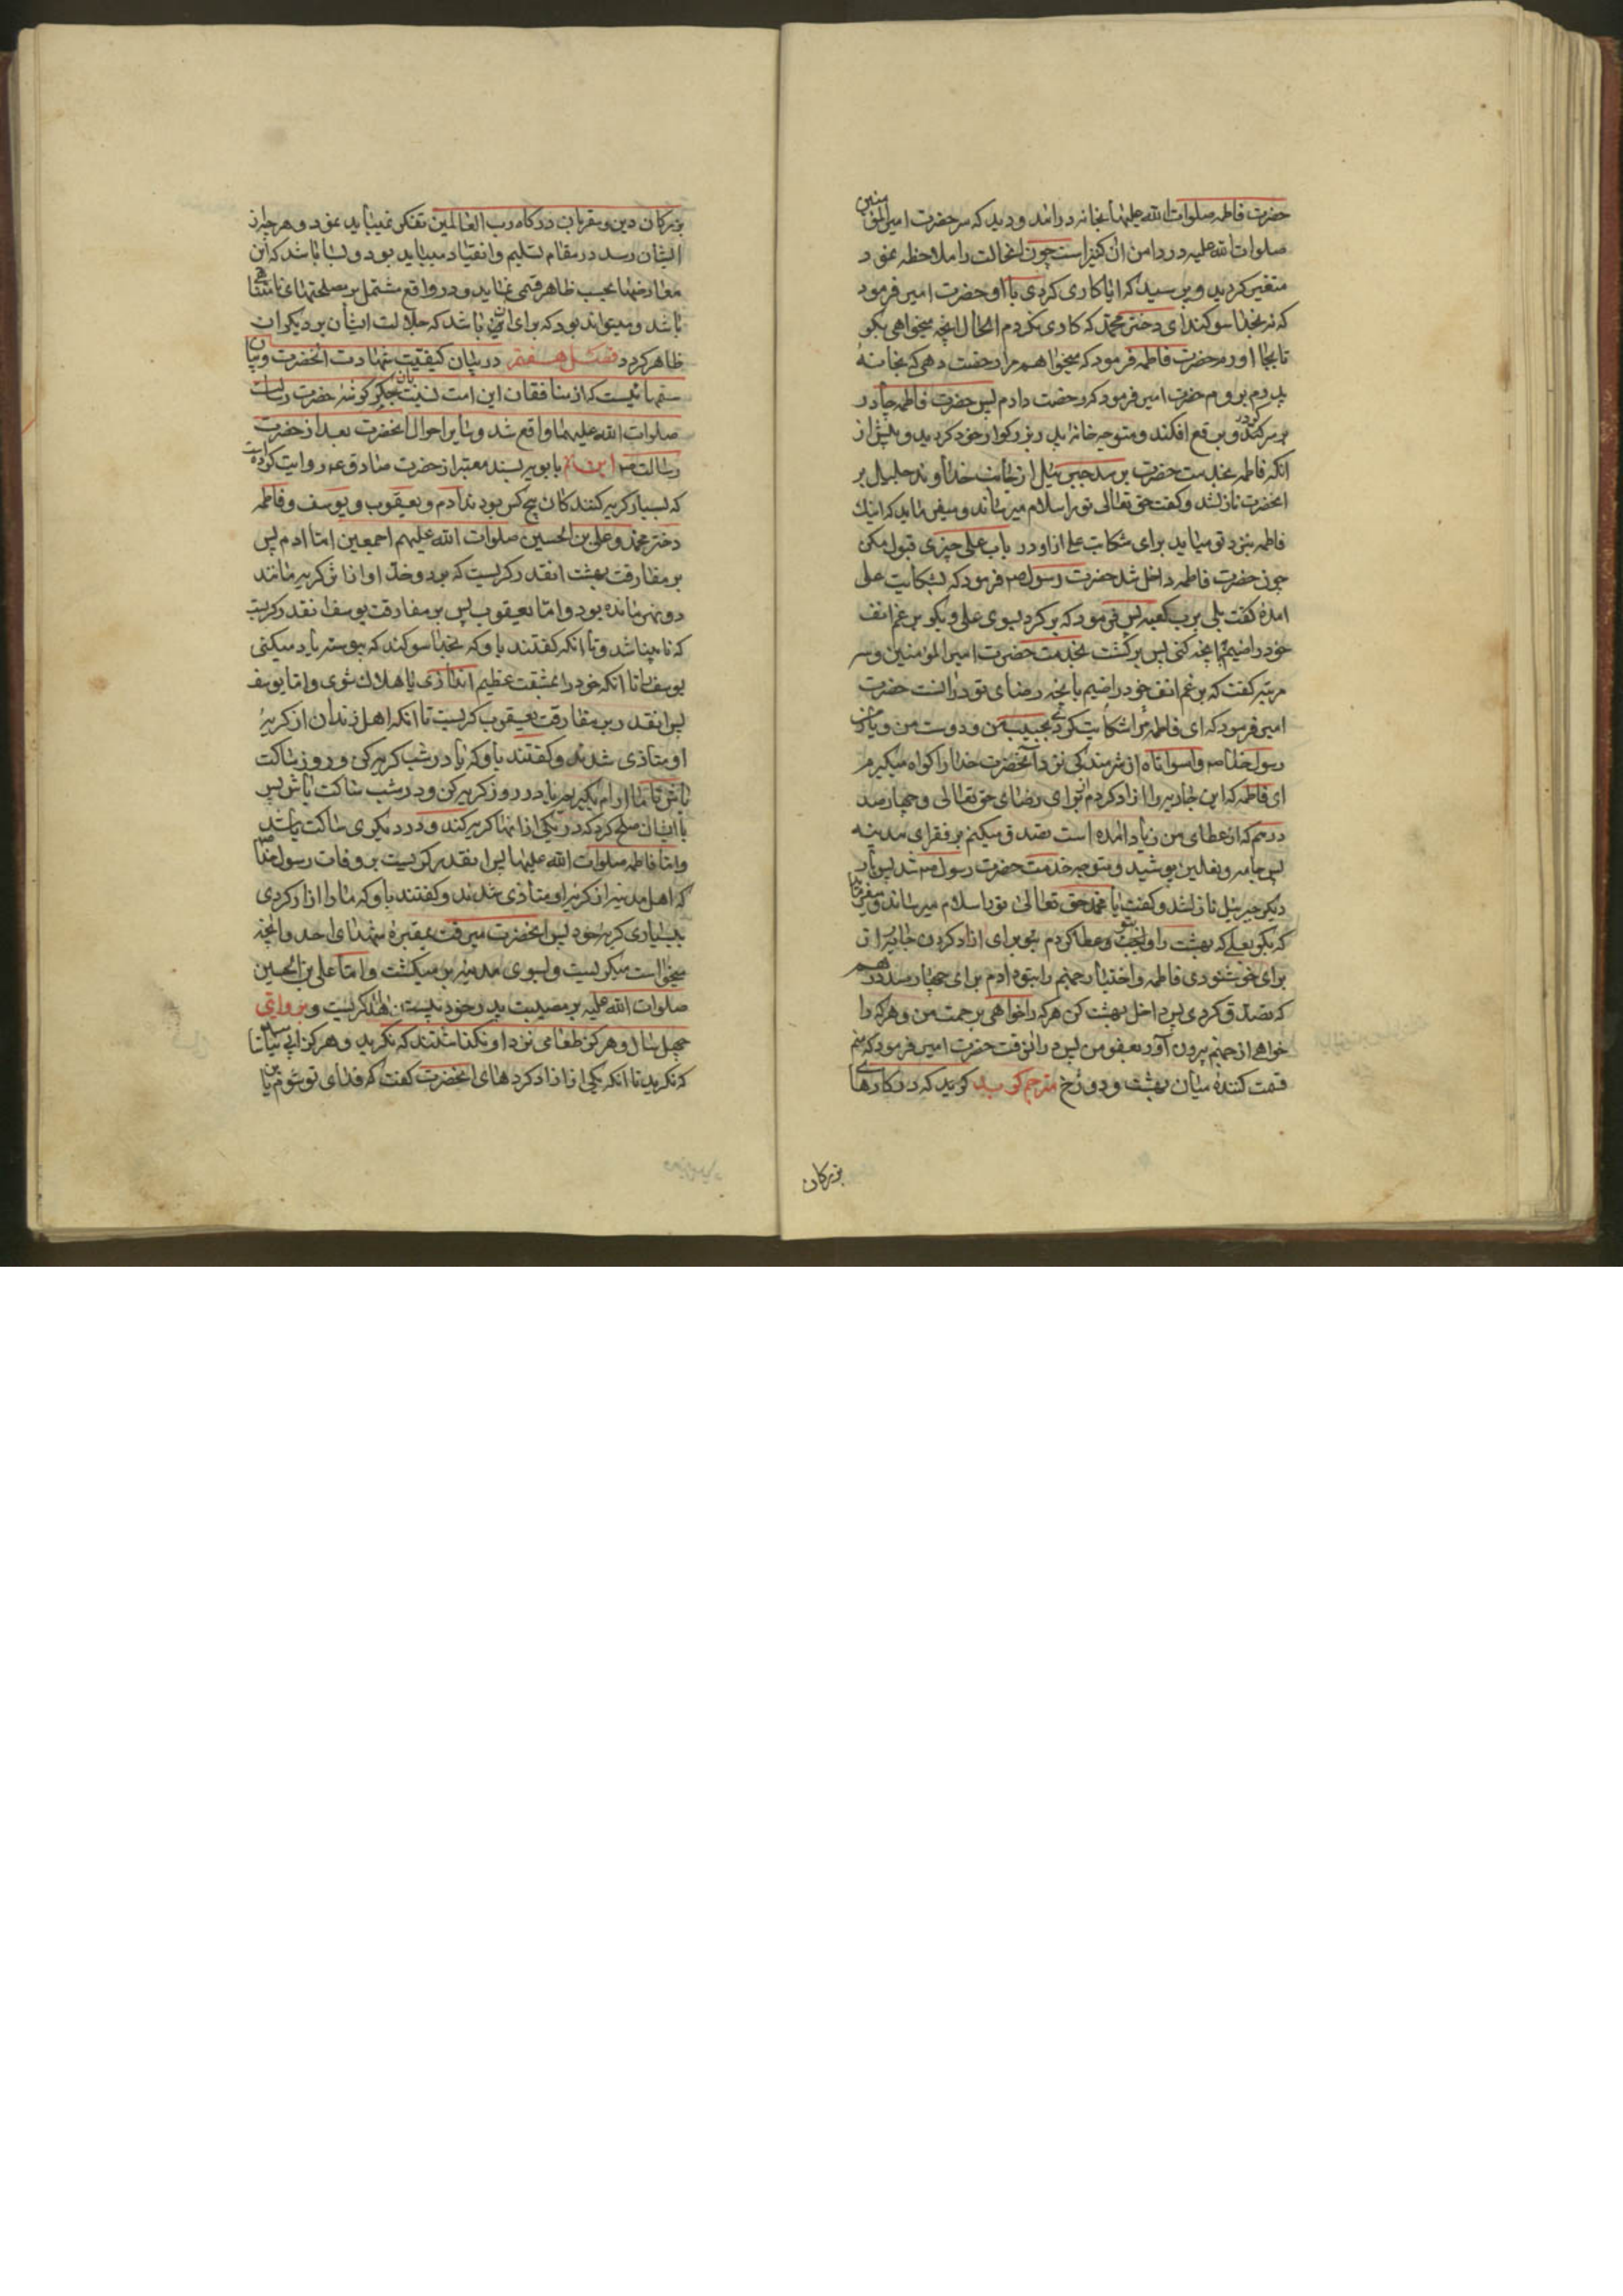 حضرت فاطمه صلوات الله علیها بخانه درامد و دید که سر حضرت امیرالمؤمنین
صلوات الله علیه در دامن ان کنیز است چون انحالت را ملاحظه نمود
متغیر کردید و پرسید که ایا کاری کردی با او حضرت امیر فرمود
که نه بخدا سوکند ای دختر محمد که کاری نکردم الحال انچه میخواهی بکو
تا بجا اورم حضرت فاطمه فرمود که میخواهم مرا رخصت دهی که بخانهٔ
پدرم بروم حضرت امیر فرمود که رخصت دادم پس حضرت فاطمه چادر
بر سر کرد و برقع افکند و متوجه خانه پدر بزرکوار خود کردید و پیش از
انکه فاطمه بخدمت حضرت برسد جبرئیل از جانب خداوند جلیل بر
انحضرت نازلشد و کفت حق تعالی تو را سلام میرساند و میفرماید که اینک
فاطمه بنزد تو میاید برای شکایت علی از او در باب علی چیزی قبول مکن
چون حضرت فاطمه داخل شد حضرت رسول ص فرمود که بشکایت علی
امدهٔ کفت بلی برب کعبه پس فرمود که برکرد بسوی علی و بکو برغم انف
خود راضیم بانچه کنی پس برکشت بخدمت حضرت امیر المؤمنین و سه
مرتبه کفت که برغم انف خود راضیم بانچه رضای تو در انست حضرت
امیر فرمود که ای فاطمه مرا شکایت کردی بحبیب من و دوست من و یار من
رسول خدا ص واسواتاه از شرمندکی نزد آنحضرت خدا را کواه میکیرم
ای فاطمه که این جاریه را ازاد کردم از برای رضای حق تعالی و چهارصد
درهم که از عطای من زیاد امده است تصدق میکنم بر فقرای مدینه
پس جامه و نعلین پوشید و متوجه خدمت حضرت رسول ص شد پس بار
دیکر جبرئیل نازلشد و کفت یا محمد حق تعالی تو را سلام میرساند و میفرماید
که بکو بعلی که بهشت را بتو عطا کردم برای ازاد کردن جاریه از
برای خوشنودی فاطمه و اختیار جهنم را بتو دادم برای چهارصد درهم
که تصدق کردی پس داخل بهشت کن هر که را خواهی برحمت من و هر که را
خواهی از جهنم بیرون آور بعفو من پس در انوقت حضرت امیر فرمود که منم
قسمت کنندهٔ میان بهشت و دوزخ مترجم کوید کوید که در کارهای
بزرکان
بزرکان دین و مقربان درکاه رب العالمین تفکر نمیباید نمود و هر چه از
ایشان رسد در مقام تسلیم و انقیاد میباید بود و بسا باشد که این
معارضها بحسب ظاهر قبحی نماید و در واقع مشتمل بر مصلحتهای نامتناهی
باشد و میتواند بود که برای این باشد که جلالت ایشان بر دیکران
ظاهر کردد فصل هفتم در بیان کیفیت شهادت انحضرت و بیان
ستمهائیست که از منافقان این امت نسبت بان جکر کوشه حضرت رسالت
صلوات الله علیهما واقع شد و سایر احوال انحضرت بعد از حضرت
رسالت ص ابن بابویه بسند معتبر از حضرت صادق ع روایت کرده است
که بسیار کریه کنندکان پنج کس بودند ادم و یعقوب و یوسف و فاطمه
دختر محمد و علی بن الحسین صلوات الله علیهم اجمعین اما ادم پس
بر مفارقت بهشت انقدر کریست که بر دو خد او اثر کریه مانند
دو نهر مانده بود و اما یعقوب پس بر مفارقت یوسف انقدر کریست
که نابینا شد و تا انکه کفتند باو که بخدا سوکند که پیوسته یاد میکنی
یوسف را تا انکه خود را بمشقت عظیم اندازی یا هلاک شوی و اما یوسف
پس انقدر بر مفارقت یعقوب کریست تا انکه اهل زندان از کریهٔ
او متاذی شدند و کفتند باو که یا در شب کریه کن و روز ساکت
باش تا ما ارام بکیریم یا در روز کریه کن و در شب ساکت باش پس
با ایشان صلح کرد که در یکی از انها کریه کند و در دیکری ساکت باشد
و اما فاطمه صلوات الله علیها پس انقدر کریست بر وفات رسول خدا ص
که اهل مدینه از کریه او متاذی شدند و کفتند باو که ما را ازار کردی
ببسیاری کریه خود پس انحضرت میرفت بمقبرهٔ شهدای احد و انچه
میخواست میکریست و بسوی مدینه برمیکشت و اما علی بن الحسین
صلوات الله علیه بر مصیبت پدر خود بیست سال کریست و بروایتی
چهل سال و هرکز طعامی نزد او نکذاشتند که نکرید و هرکز ابی نیاشامید
که نکرید تا انکه یکی از ازاد کردهای انحضرت کفت که فدای تو شوم یابن